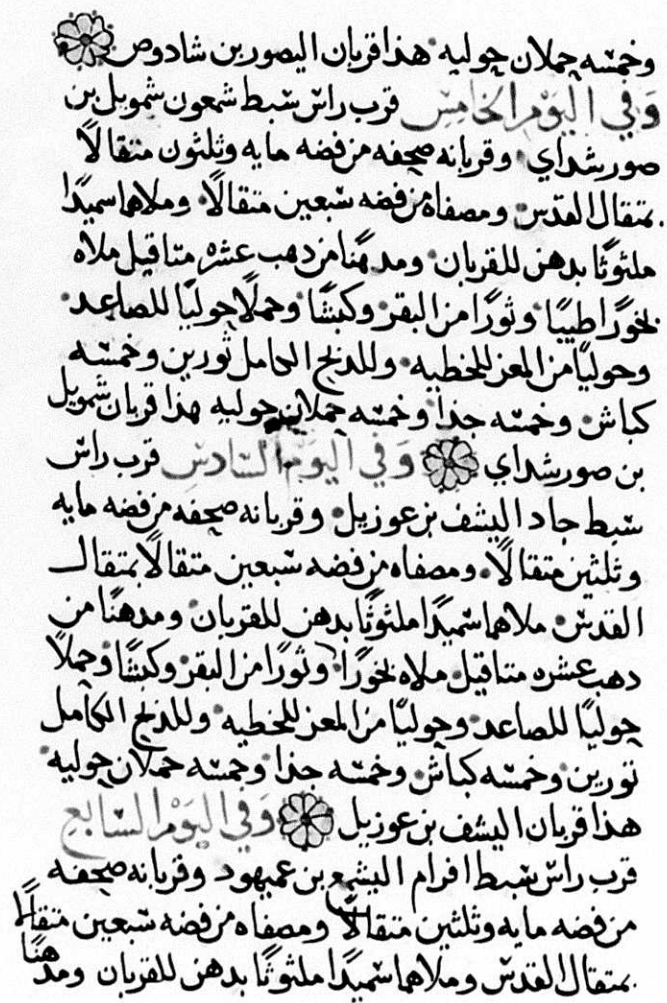 وخمسه حملان حوليه هذا قربان اليصور بن شادوص
وَفي اليَوْم الخامِس قرب راس سبط شمعون شمويل بن
صور شداي وقربانه صحفه من فضه مايه وثلثون متقالًا
بمتقال القدس ومصفاة من فضه سبعين متقالًا وملاهما سميدًا
ملثوثًا بدهن للقربان ومدهنًا من دهب عشره متاقيل ملاه
بخورًا طيبًا وثورًا من البقر وكبشًا وحملًا حوليًا للصاعد
وحوليًا من المعز للخطيه وللذبح الكامل ثورين وخمسه
كباش وخمسه جدا وخمسه حملان حوليه هذا قربان شمويل
بن صور شداي وَفي اليَوْم السَّادس قرب راس
سبط جاد اليشف بن عوزيل وقربانه صحفه من فضه مايه
وثلثين متقالًا ومصفاه من فضه سبعين متقالًا بمتقال
القدس ملاهما سميدًا ملثوثًا بدهن للقربان ومدهنًا من
دهب عشره متاقيل ملاه بخورًا وثورًا من البقر وكبشًا وحملًا
حوليًا للصاعد وحوليًا من المعز للخطيه وللذبح الكامل
تورين وخمسه كباش وخمسه جدا وخمسه حملان حوليه
هذا قربان اليشف بن عوزيل وَفي اليَوْم السَّابع
قرب راس سبط افرام اليشمع بن عميهود وقربانه صحفه
من فضه مايه وثلثين متقالًا ومصفاه من فضه سبعين متقالًا
بمتقال القدس وملاهما سميدًا ملثوثًا بدهن للقربان ومدهنًا